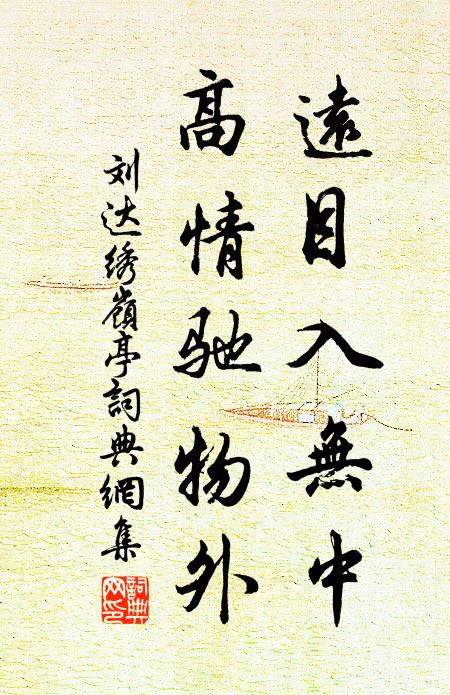 遠目入無中
高情驰物外
刘达绣嶺亭詞典網集
詞典網印